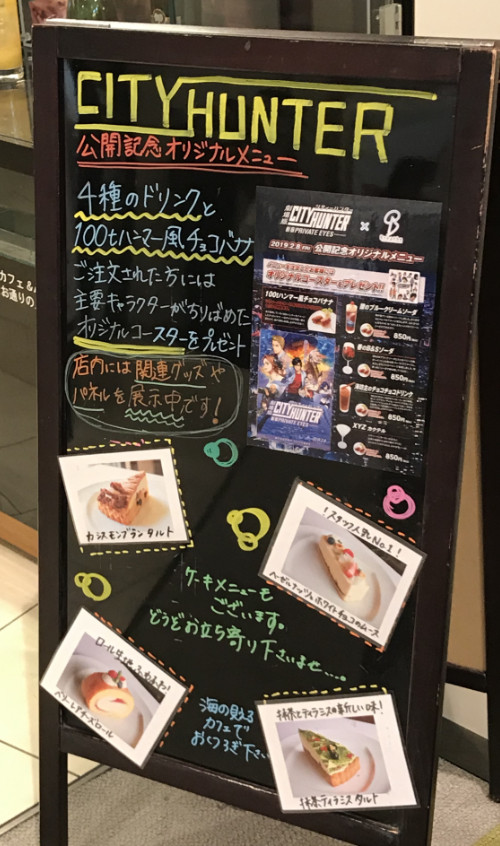 CITYHUNTER
公開記念オリジナルメニュー
4種のドリンクと
100tハンマー風チョコバナナ
ご注文された方には
主要キャラクターがちりばめた
オリジナルコースターをプレゼント
店内には関連グッズや
パネルを展示中です!
CITYHUNTER
新宿PRIVATE EYES
×
2019.2.8 FRI 公開記念オリジナルメニュー
オリジナルコースタープレゼント!!
100tハンマー風チョコバナナ
850円
850円
850円
XYZ カクテル
850円
CITYHUNTER
カシスモンブランタルト
!スタッフ人気No.1!
ヘーゼルナッツとホワイトチョコのムース
ケーキメニューも
ございます。
どうぞお立ち寄り下さいませ....。
ロール生地ふわふわ!
ベリーレアチーズロール
海の见える
カフェで
おくつろぎ下さい
抹茶とティラミスの新しい味!
抹茶ティラミスタルト
カフェ&
お通りの